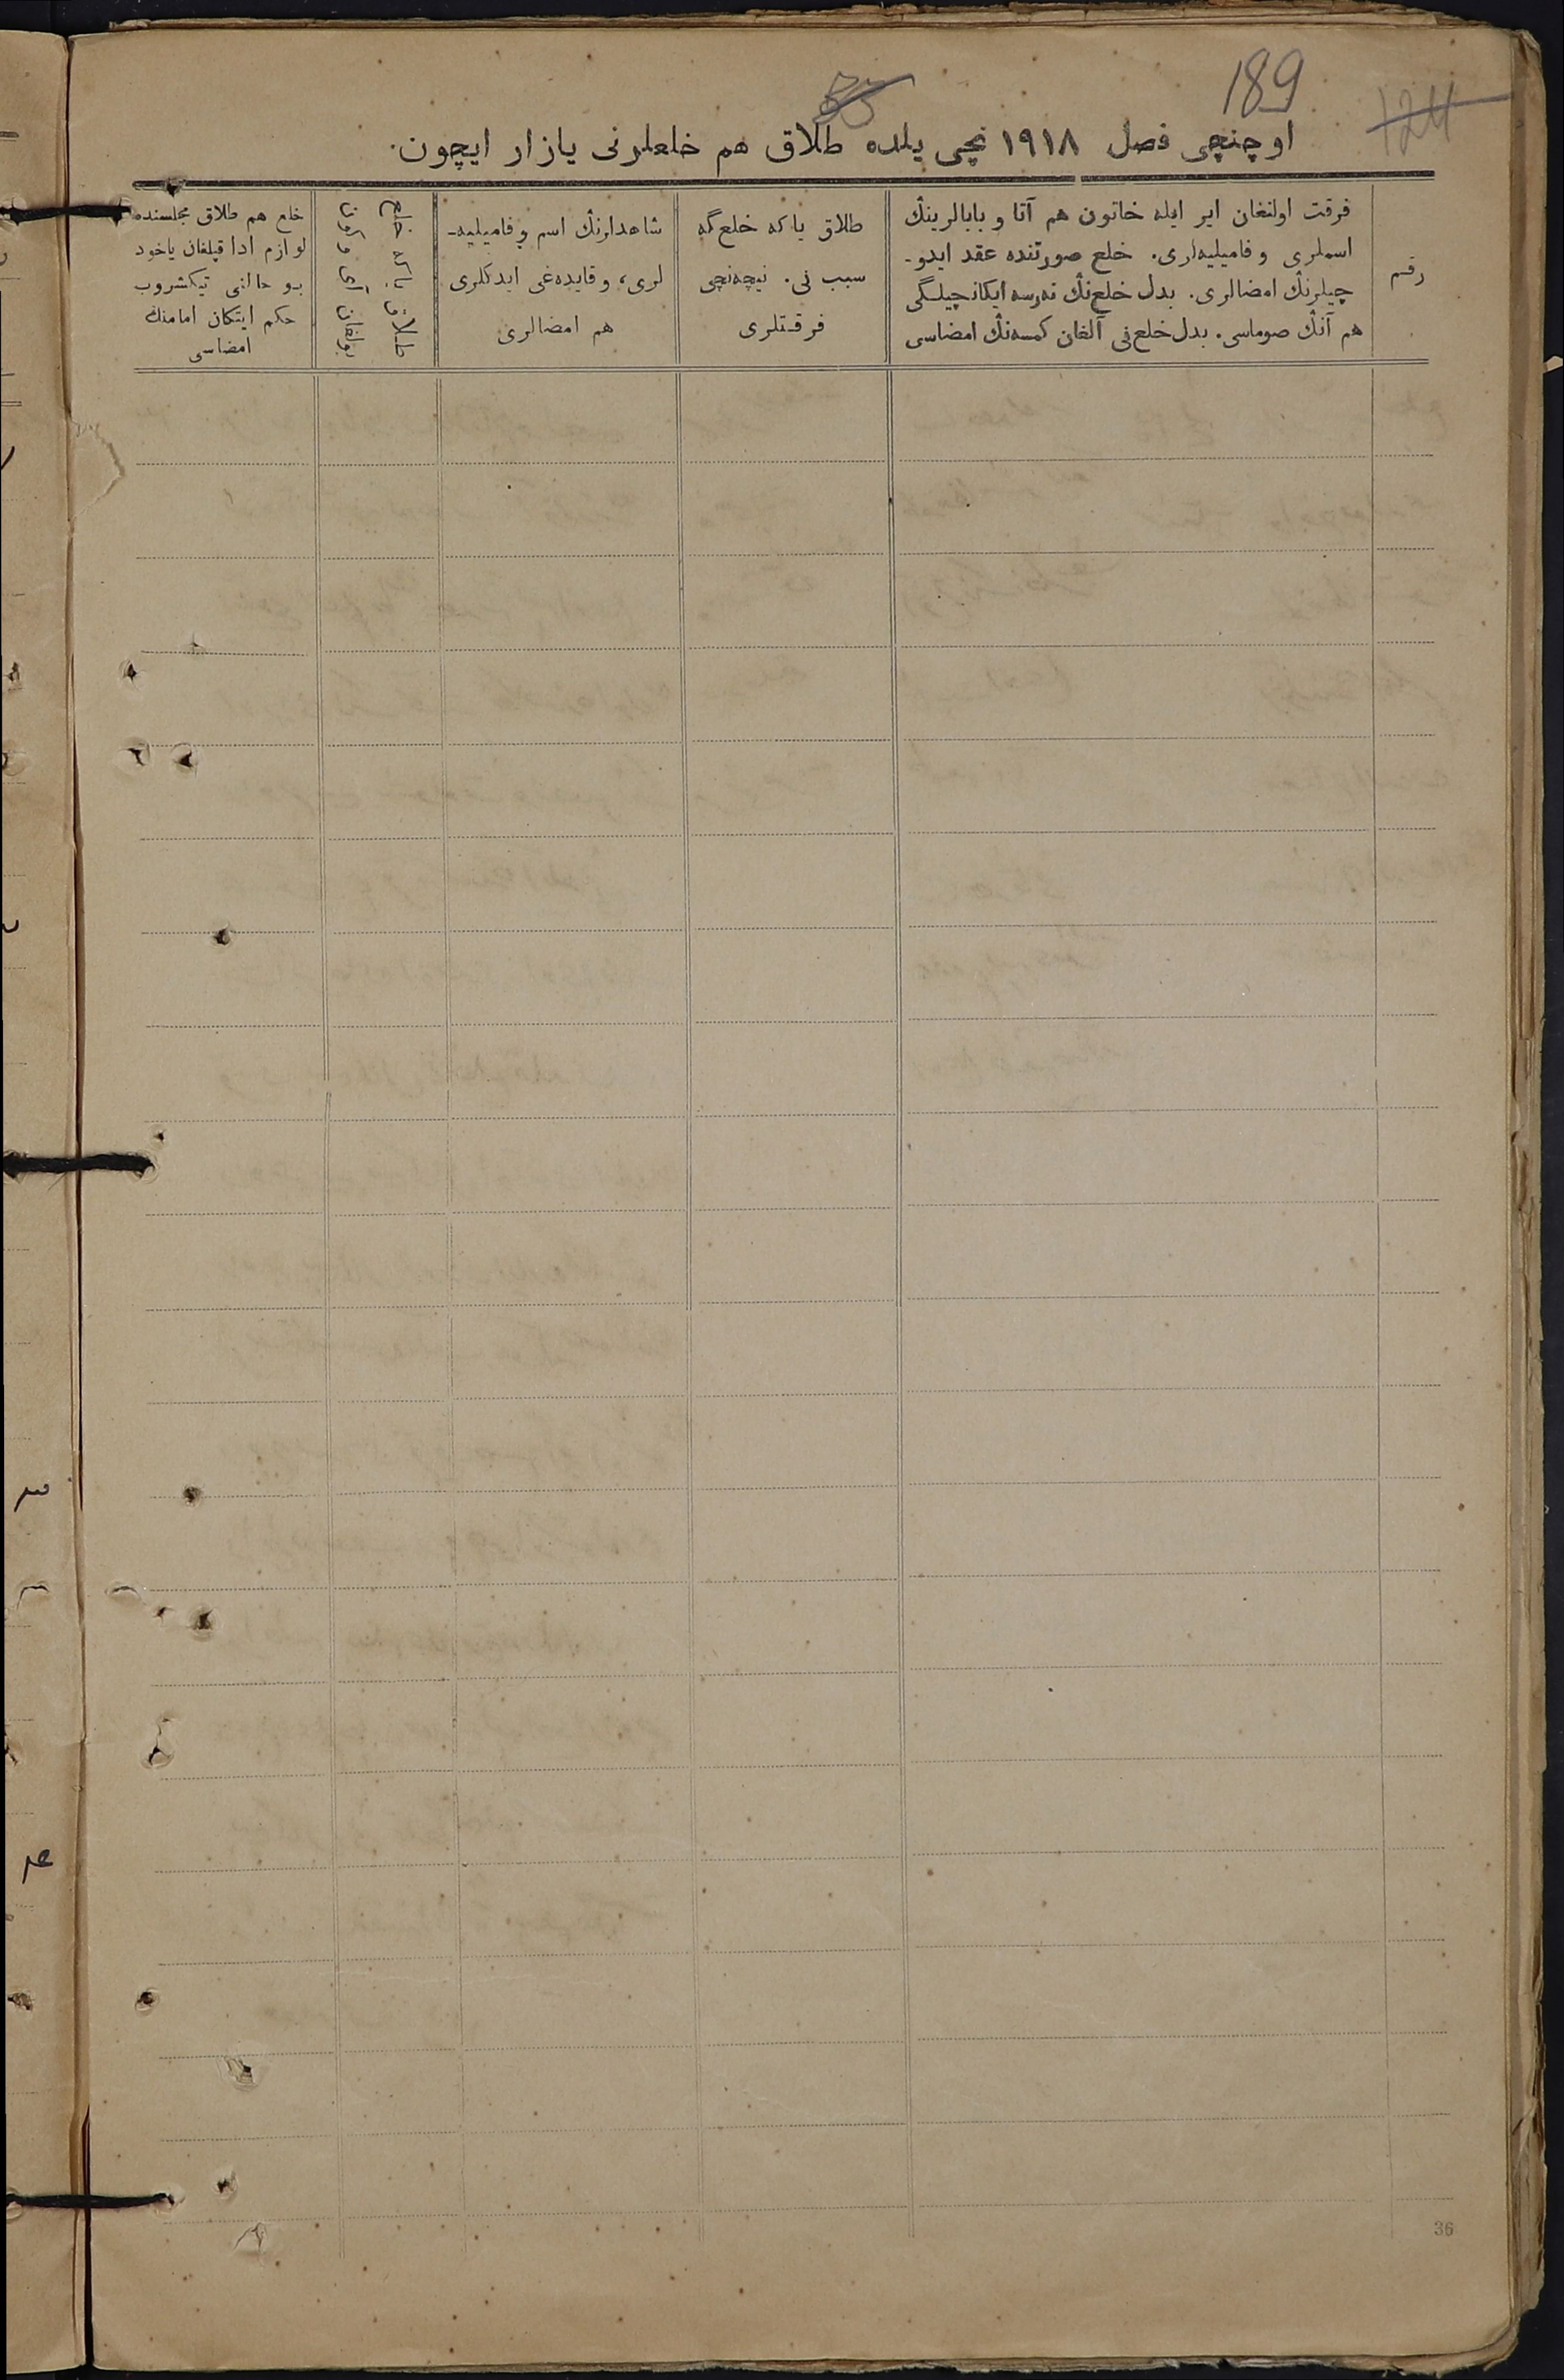 189
124
53
اوچنچی فصل ١٩١٨ نچی یلده طلاق هم خلعلرنی یازار ایچون.
رقم
فرقت اولنغان ایر ایله خاتون هم آتا و بابالرینڭ
اسملری و فامیلیه‌لری. خلع صورتنده عقد ایدو-
چیلرنڭ امضالری. بدل خلع‌نڭ نه‌رسه ایکانچیلگی
هم آنڭ صوماسی. بدل خلع‌نی آلغان کمسه‌نڭ امضاسی
طلاق یا که خلع گه
سبب نی. نیچه‌نچی
فرقتلری
شاهدلرنڭ اسم و فامیلیه-
لری، و قایده‌غی ایدکلری
هم امضالری
طلاق یا که خلع
بولغان آی و کون
خلع هم طلاق مجلسنده
لوازم ادا قیلغان یاخود
بو حالنی تیکشروب
حکم ایتکان امامنڭ
امضاسی
36